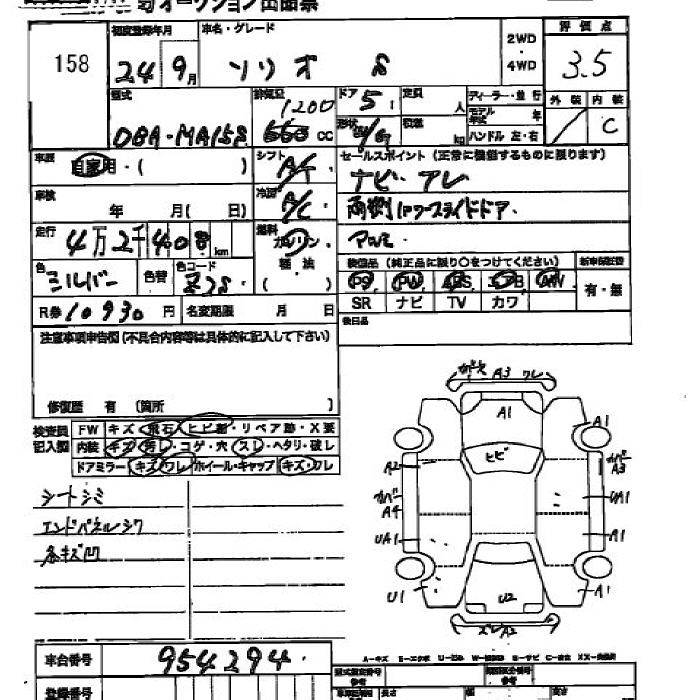 オークション出品票
158
初度登録年月 車名・グレード 2WD・4WD 評価点
24 9月 ソリオ S 3.5
型式 排気量 ドア 定員 ディーラー・並行 外装 内装
1200 5 人 モデル年式 年
DBA-MA15S 660 cc 形状 積載 kg ハンドル 左・右 C
車歴 自家用・( ) シフト A/T セールスポイント(正常に機能するものに限ります)
ナビ・アレ
車検 年 月( 日) 冷房 A/C 両側パワースライドドア.
走行 4万2千408 km 燃料 ガソリン 軽油 ( ) アルミ
装備品(純正品に限り○をつけてください) 新車保証書
色 シルバー 色替 色コード Z2S
PS PW ABS エアB AW 有・無
SR ナビ TV カワ
R券 10930 円 名変期限 月 日 後日品
注意事項申告欄(不具合内容等は具体的に記入して下さい)
修復歴 有 (箇所 )
検査員記入欄 FW キズ・飛石・ヒビ割・リペア跡・X要
内装 キズ・汚レ・コゲ・穴・スレ・ヘタリ・破レ
ドアミラー キズ・ワレ ホイール・キャップ キズ・ワレ
シートシミ
エンドパネルシワ
キズ凹
A3 ワレ
A1
A1
ヒビ
A2
A3
A4
UA1
UA1
A1
U1
U2
A1
ズレA2
A-キズ E-エクボ
車台番号 954294
登録番号